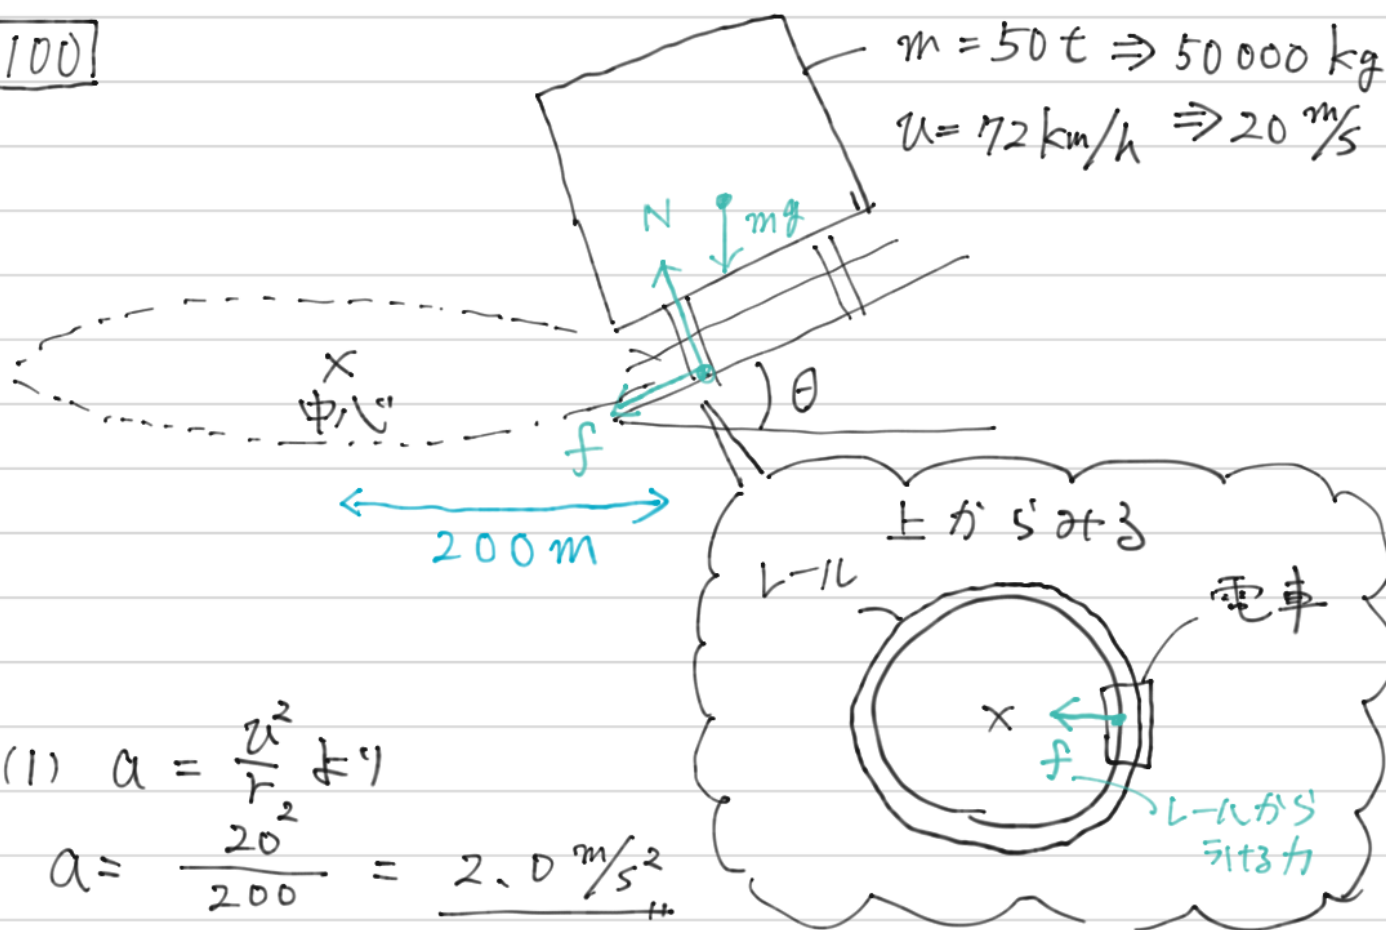 100
m = 50t ⇒ 50000 kg
v = 72km/h ⇒ 20 m/s
N
mg
θ
×
中心
f
200m
上からみる
レール
電車
×
f
レールから
うける力
(1) a = v²/r より
a = 20²/200 = 2.0 m/s²